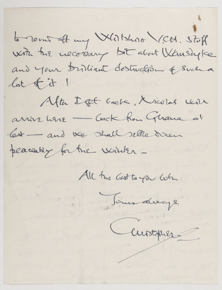 to round off my Wiltshire VCH. stuff
with the necessary bit about Wansdyke
and your brilliant destruction of such a
lot of it!
After I get back, Nicolas will
arrive here — back from Ghana at
last — and we shall settle down
peacefully for the winter —
All the best to you both
Yours always
Christopher